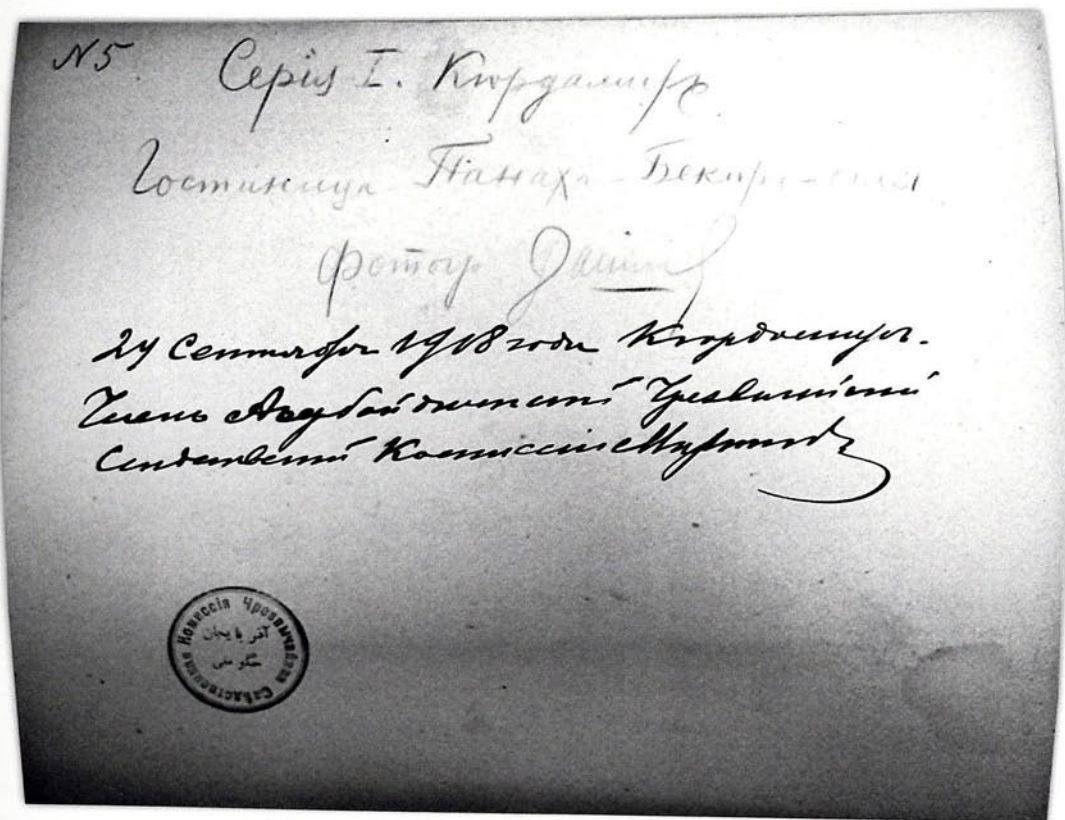 N5
Серія I. Кюрдамиръ
Гостиница Панаха-Бекира-
фотогр
24 Сентября 1918 года Кюрдамиръ.
Членъ Азербайджанской Чрезвычайной
Следственной Комиссіи
Чрезвычайная Слѣдственная Комиссія
آذربایجان